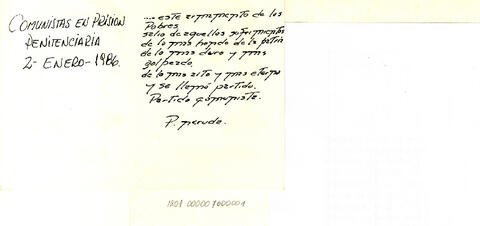 COMUNISTAS EN PRISION
PENITENCIARIA
2- ENERO-1986.
...este
de los
Pobres
salio de aquellos sufrimientos
de lo mas hondo de la patria
de lo mas duro y mas
golpeado
de lo mas alto y mas eterno
y se llamó partido.
Partido Comunista.
P. neruda.